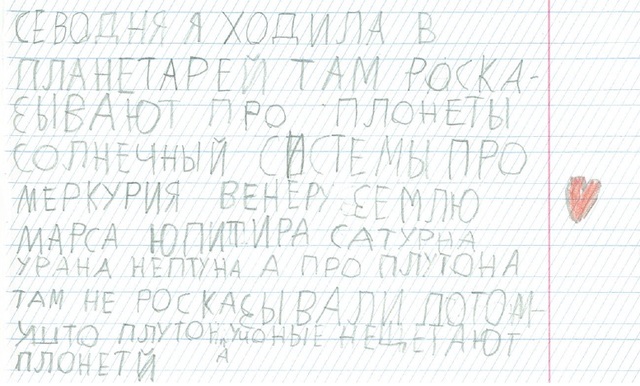 СЕВОДНЯ Я ХОДИЛА В
ПЛАНЕТАРЕЙ ТАМ РОСКА-
ЗЫВАЮТ ПРО ПЛОНЕТЫ
СОЛНЕЧНЫЙ СИСТЕМЫ ПРО
МЕРКУРИЯ ВЕНЕРУ ЗЕМЛЮ
МАРСА ЮПИТИРА САТУРНА
УРАНА НЕПТУНА А ПРО ПЛУТОНА
ТАМ НЕ РОСКАЗЫВАЛИ ПОТОМ-
УШТО ПЛУТОН НЕЩЕТАЮТ
ПЛОНЕТЙ